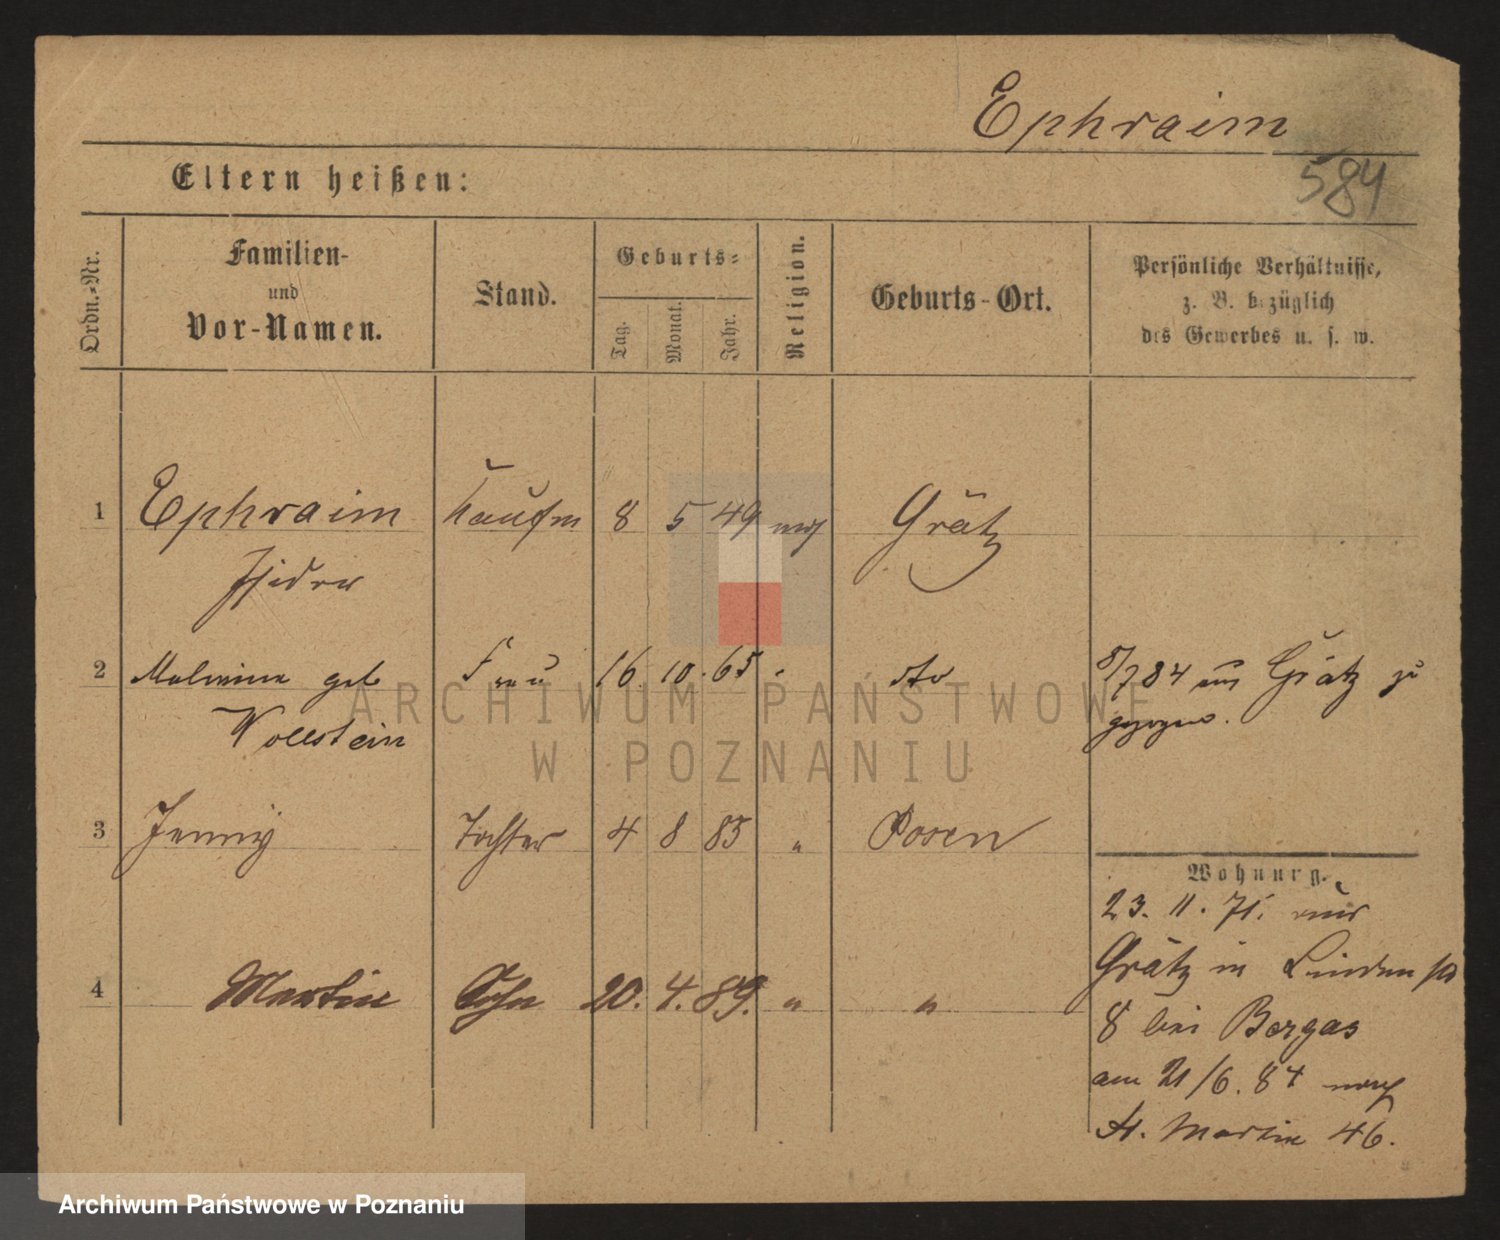 Ephraim
584
Eltern heißen:
Ordn.-Nr.
Familien-
und
Vor-Namen.
Stand.
Geburts-
Tag.
Monat.
Jahr.
Religion.
Geburts-Ort.
Persönliche Verhältnisse,
z. B. bezüglich
des Gewerbes u. s. w.
1 Ephraim Kaufm 8 5 49 mos Grätz
Isidor
2 Malwine geb Frau 16. 10. 65 " dto 8/7 84 aus Grätz zu
Wollstein gezogen.
3 Jenny Tochter 4 8 85 " Posen
Wohnung.
23. 11. 71. aus
Grätz in Linden str
8 bei Bergas
4 Martin Sohn 20. 4. 89. " "
am 21/6. 84 nach
St. Martin 46.
ARCHIWUM PAŃSTWOWE
W POZNANIU
Archiwum Państwowe w Poznaniu